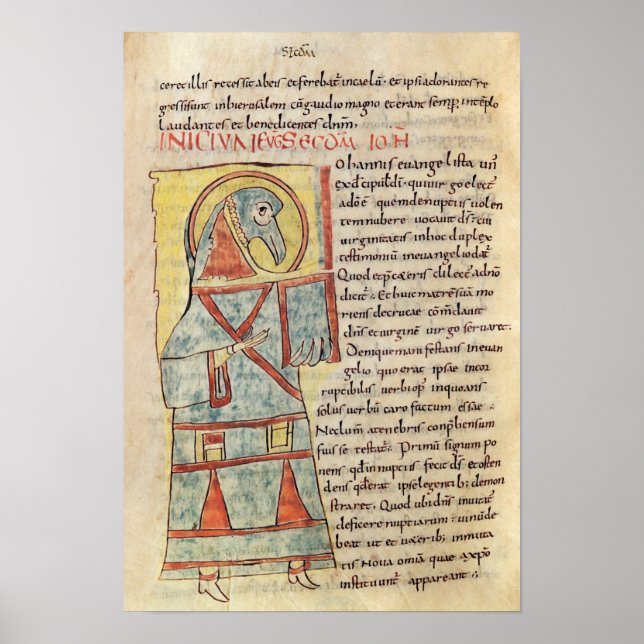 Scdm
ceret illis recessit abeis et ferebat̄ in caelū· et ipsi adorantes re
gressi sunt in hierusalem cū gaudio magno et erant semp̄ in templo
laudantes et benedicentes dnm̄.
INICIUM EUG SECDM IOH
ohannis evangelista un̄
ex discipulis dī· qui virgo elect̄
adō ē quem de nuptiis volen
tem nubere vocavit ds̄· cui
virginitatis in hoc duplex
testimoniū in evangelio dat̄
Quod et p̄ ceteris dilect̄ adnō
dicit̄· Et huic matrē suā mo
riens de cruce cōmdavit
dns̄ et virginē virgo servaret·
Denique manifestans in evan
gelio quo erat ipsae incor
rupcibilis verbi op̄ inquoans
solus verbū caro factum essae·
Nec lum̄ a tenebris conp̄hensum
fuisse testat̄· Primū signum po
nens qd̄ in nuptiis fecit ds̄ et osten
dens qd̄ erat ipse legentib; demon
straret· Quod ubi dns̄ invitat̄
deficere nuptiarum vinū de
beat ut et veterib; inmuta
tis Nova omia quae a xpō
instituunt̄ appareant·